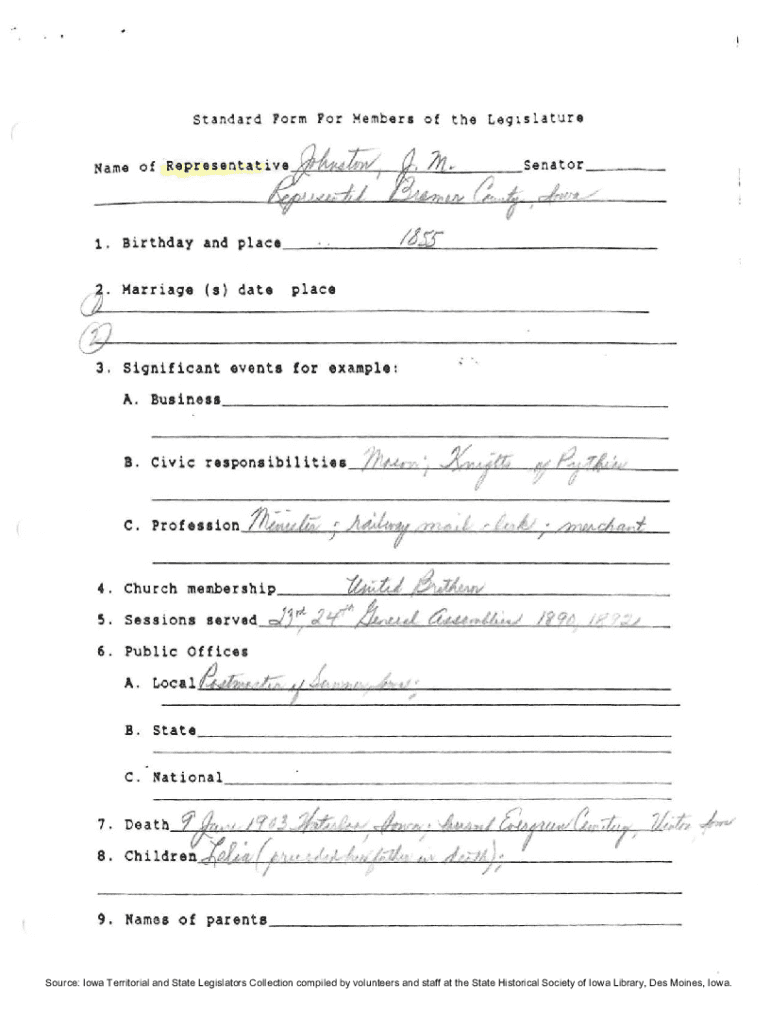 Standard Form For Members of the Legislature
Name of Representative Johnston, J. M. Senator
Represented Bremer County, Iowa
1. Birthday and place 1855
2. Marriage (s) date place
(1)
(2)
3. Significant events for example:
A. Business
B. Civic responsibilities Mason; Knights of Pythias
C. Profession Minister; railway mail clerk; merchant
4. Church membership United Brethern
5. Sessions served 23rd, 24th General Assemblies 1890, 1892
6. Public Offices
A. Local Postmaster of Sumner, Iowa;
B. State
C. National
7. Death 9 1903 Waterloo, Iowa; buried Evergreen Cemetery, Vinton, Iowa
8. Children Lelia (preceded her father in death);
9. Names of parents
Source: Iowa Territorial and State Legislators Collection compiled by volunteers and staff at the State Historical Society of Iowa Library, Des Moines, Iowa.